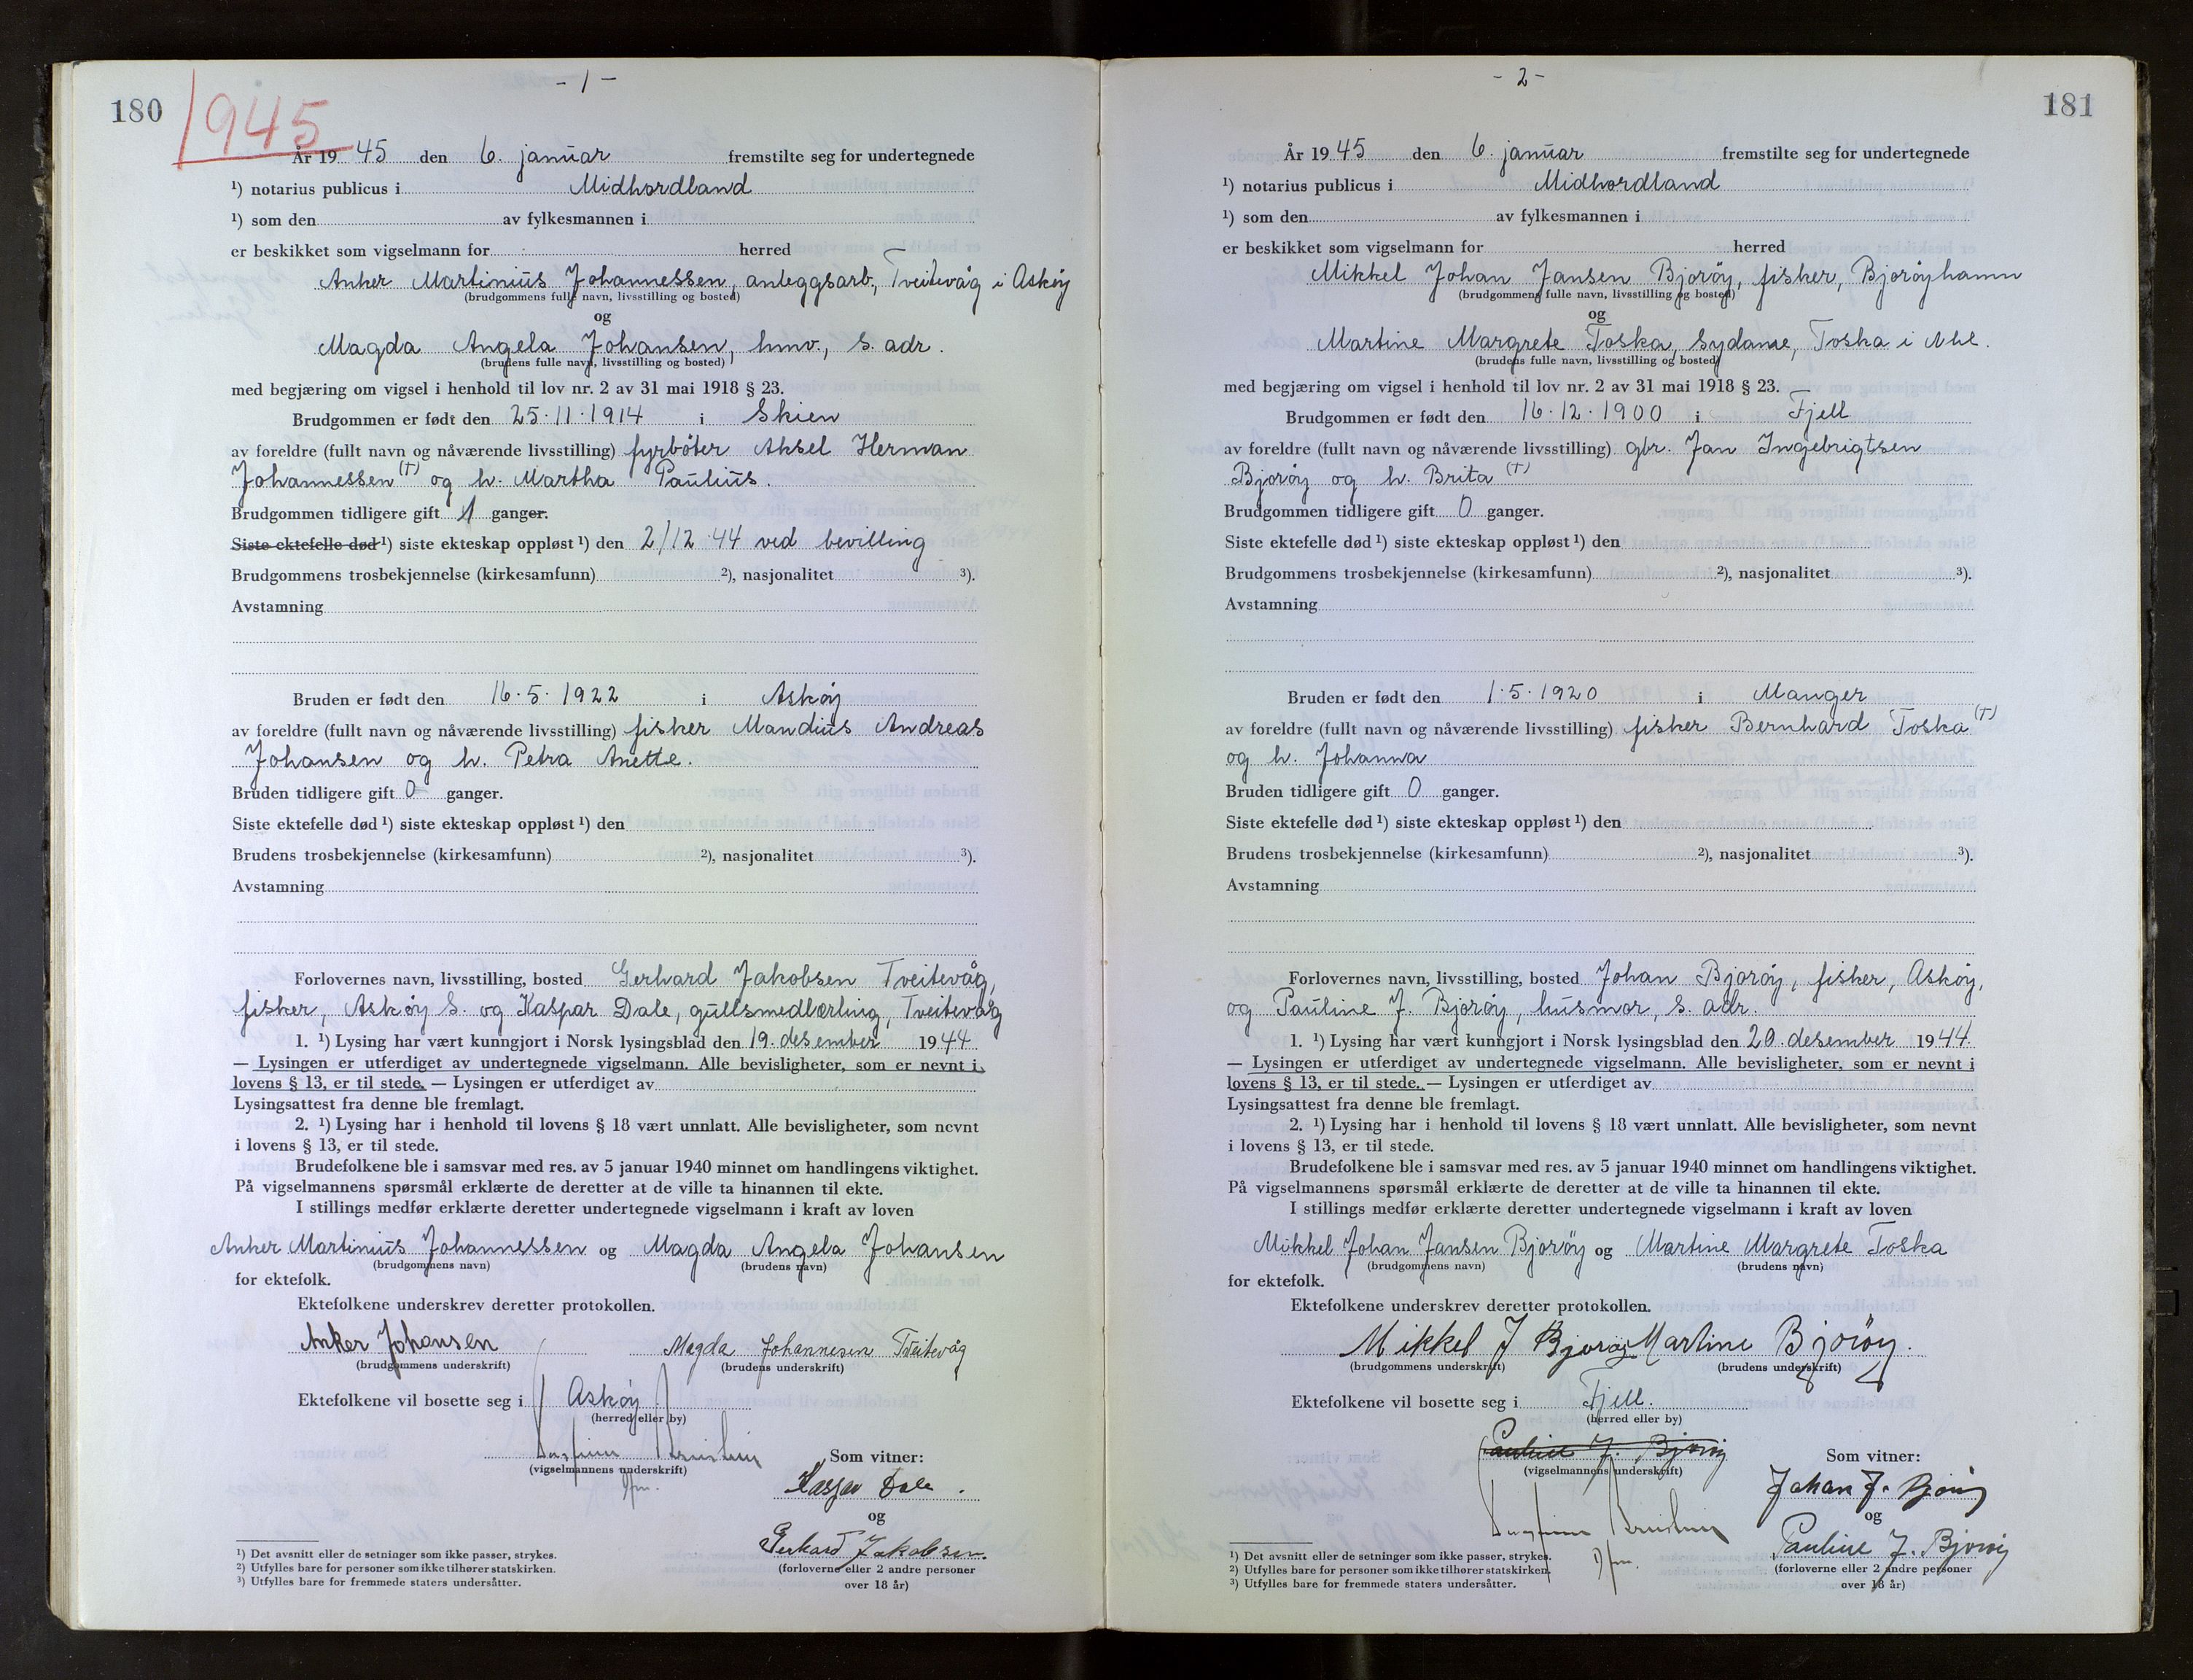 180
1945
- 1 -
År 1945 den 6. januar fremstilte seg for undertegnede
¹) notarius publicus i Midhordland
¹) som den av fylkesmannen i
er beskikket som vigselmann for herred
Anker Martinius Johannessen, anleggsarb., Tveitevåg i Askøy
(brudgommens fulle navn, livsstilling og bosted)
og
Magda Angela Johansen, hmv., s. adr.
(brudens fulle navn, livsstilling og bosted)
med begjæring om vigsel i henhold til lov nr. 2 av 31 mai 1918 § 23.
Brudgommen er født den 25.11.1914 i Skien
av foreldre (fullt navn og nåværende livsstilling) fyrbøter Aksel Herman
Johannessen (†) og h. Martha Paulius.
Brudgommen tidligere gift 1 ganger.
Siste ektefelle død ¹) siste ekteskap oppløst ¹) den 2/12.44 ved bevilling
Brudgommens trosbekjennelse (kirkesamfunn) ²), nasjonalitet ³).
Avstamning
Bruden er født den 16.5.1922 i Askøy
av foreldre (fullt navn og nåværende livsstilling) fisker Mandius Andreas
Johansen og h. Petra Anette.
Bruden tidligere gift 0 ganger.
Siste ektefelle død ¹) siste ekteskap oppløst ¹) den
Brudens trosbekjennelse (kirkesamfunn) ²), nasjonalitet ³).
Avstamning
Forlovernes navn, livsstilling, bosted Gerhard Jakobsen Tveitevåg,
fisker, Askøy s. og Kaspar Dale, gullsmedlærling, Tveitevåg
1. ¹) Lysing har vært kunngjort i Norsk lysingsblad den 19. desember 1944
— Lysingen er utferdiget av undertegnede vigselmann. Alle bevisligheter, som er nevnt i
lovens § 13, er til stede. — Lysingen er utferdiget av
Lysingsattest fra denne ble fremlagt.
2. ¹) Lysing har i henhold til lovens § 18 vært unnlatt. Alle bevisligheter, som nevnt
i lovens § 13, er til stede.
Brudefolkene ble i samsvar med res. av 5 januar 1940 minnet om handlingens viktighet.
På vigselmannens spørsmål erklærte de deretter at de ville ta hinannen til ekte.
I stillings medfør erklærte deretter undertegnede vigselmann i kraft av loven
Anker Martinius Johannessen og Magda Angela Johansen
(brudgommens navn) (brudens navn)
for ektefolk.
Ektefolkene underskrev deretter protokollen.
Anker Johansen Magda Johannesen Tveitevåg
(brudgommens underskrift) (brudens underskrift)
Ektefolkene vil bosette seg i Askøy
(herred eller by)
(vigselmannens underskrift)
Som vitner:
Kaspar Dale.
og
Gerhard Jakobsen.
(forloverne eller 2 andre personer
over 18 år)
¹) Det avsnitt eller de setninger som ikke passer, strykes.
²) Utfylles bare for personer som ikke tilhører statskirken.
³) Utfylles bare for fremmede staters undersåtter.
- 2 -
181
År 1945 den 6. januar fremstilte seg for undertegnede
¹) notarius publicus i Midhordland
¹) som den av fylkesmannen i
er beskikket som vigselmann for herred
Mikkel Johan Jansen Bjorøy, fisker, Bjorøyhamn
(brudgommens fulle navn, livsstilling og bosted)
og
Martine Margrete Toska, sydame, Toska i Mhl.
(brudens fulle navn, livsstilling og bosted)
med begjæring om vigsel i henhold til lov nr. 2 av 31 mai 1918 § 23.
Brudgommen er født den 16.12.1900 i Fjell
av foreldre (fullt navn og nåværende livsstilling) gbr. Jan Ingebrigtsen
Bjorøy og h. Brita (†)
Brudgommen tidligere gift 0 ganger.
Siste ektefelle død ¹) siste ekteskap oppløst ¹) den
Brudgommens trosbekjennelse (kirkesamfunn) ²), nasjonalitet ³).
Avstamning
Bruden er født den 1.5.1920 i Manger
av foreldre (fullt navn og nåværende livsstilling) fisker Bernhard Toska (†)
og h. Johanna
Bruden tidligere gift 0 ganger.
Siste ektefelle død ¹) siste ekteskap oppløst ¹) den
Brudens trosbekjennelse (kirkesamfunn) ²), nasjonalitet ³).
Avstamning
Forlovernes navn, livsstilling, bosted Johan Bjorøy, fisker, Askøy,
og Pauline J. Bjorøy, husmor, s. adr.
1. ¹) Lysing har vært kunngjort i Norsk lysingsblad den 20. desember 1944
— Lysingen er utferdiget av undertegnede vigselmann. Alle bevisligheter, som er nevnt i
lovens § 13, er til stede. — Lysingen er utferdiget av
Lysingsattest fra denne ble fremlagt.
2. ¹) Lysing har i henhold til lovens § 18 vært unnlatt. Alle bevisligheter, som nevnt
i lovens § 13, er til stede.
Brudefolkene ble i samsvar med res. av 5 januar 1940 minnet om handlingens viktighet.
På vigselmannens spørsmål erklærte de deretter at de ville ta hinannen til ekte.
I stillings medfør erklærte deretter undertegnede vigselmann i kraft av loven
Mikkel Johan Jansen Bjorøy og Martine Margrete Toska
(brudgommens navn) (brudens navn)
for ektefolk.
Ektefolkene underskrev deretter protokollen.
Mikkel J Bjorøy Martine Bjorøy.
(brudgommens underskrift) (brudens underskrift)
Ektefolkene vil bosette seg i Fjell.
(herred eller by)
Pauline J. Bjorøy
(vigselmannens underskrift)
Som vitner:
Johan J. Bjorøy
og
Pauline J. Bjorøy
(forloverne eller 2 andre personer
over 18 år)
¹) Det avsnitt eller de setninger som ikke passer, strykes.
²) Utfylles bare for personer som ikke tilhører statskirken.
³) Utfylles bare for fremmede staters undersåtter.